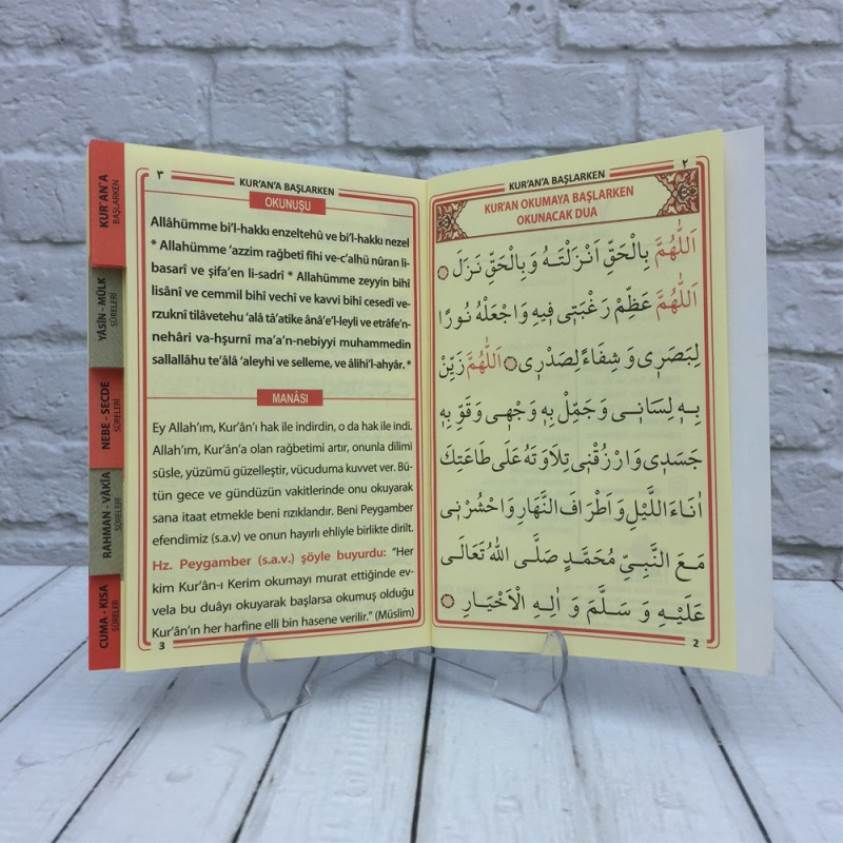 KUR'AN'A
BAŞLARKEN
YÂSÎN - MÜLK
SÛRELERİ
NEBE - SECDE
SÛRELERİ
RAHMAN - VÂKİA
SÛRELERİ
CUMA - KISA
SÛRELER
٣
KUR'AN'A BAŞLARKEN
OKUNUŞU
Allâhümme bi'l-hakkı enzeltehû ve bi'l-hakkı nezel
* Allahümme 'azzim rağbetî fîhi ve-c'alhü nûran li-
basarî ve şifa'en li-sadrî * Allahümme zeyyin bihî
lisânî ve cemmil bihî vechî ve kavvi bihî cesedî ve-
rzuknî tilâvetehu 'alâ tâ'atike ânâe'l-leyli ve etrâfe'n-
nehâri va-hşurnî ma'a'n-nebiyyi muhammedin
sallallâhu te'âlâ 'aleyhi ve selleme, ve âlihi'l-ahyâr. *
MANÂSI
Ey Allah'ım, Kur'ân'ı hak ile indirdin, o da hak ile indi.
Allah'ım, Kur'ân'a olan rağbetimi artır, onunla dilimi
süsle, yüzümü güzelleştir, vücuduma kuvvet ver. Bü-
tün gece ve gündüzün vakitlerinde onu okuyarak
sana itaat etmekle beni rızıklandır. Beni Peygamber
efendimiz (s.a.v) ve onun hayırlı ehliyle birlikte dirilt.
Hz. Peygamber (s.a.v.) şöyle buyurdu: "Her
kim Kur'ân-ı Kerim okumayı murat ettiğinde ev-
vela bu duâyı okuyarak başlarsa okumuş olduğu
Kur'ân'ın her harfine elli bin hasene verilir." (Müslim)
3
٢
KUR'AN'A BAŞLARKEN
KUR'AN OKUMAYA BAŞLARKEN
OKUNACAK DUA
اَللّٰهُمَّ بِالْحَقِّ اَنْزَلْتَهُ وَبِالْحَقِّ نَزَلَ
اَللّٰهُمَّ عَظِّمْ رَغْبَتِى فِيهِ وَاجْعَلْهُ نُورًا
لِبَصَرِى وَ شِفَاءً لِصَدْرِى اَللّٰهُمَّ زَيِّنْ
بِهِ لِسَانِى وَ جَمِّلْ بِهِ وَجْهِى وَقَوِّ بِهِ
جَسَدِى وَارْزُقْنِى تِلَاوَتَهُ عَلَى طَاعَتِكَ
اٰنَاءَ اللَّيْلِ وَ اَطْرَافَ النَّهَارِ وَاحْشُرْنِى
مَعَ النَّبِىِّ مُحَمَّدٍ صَلَّى اللّٰهُ تَعَالَى
عَلَيْهِ وَ سَلَّمَ وَ اٰلِهِ الْاَخْيَارِ
2